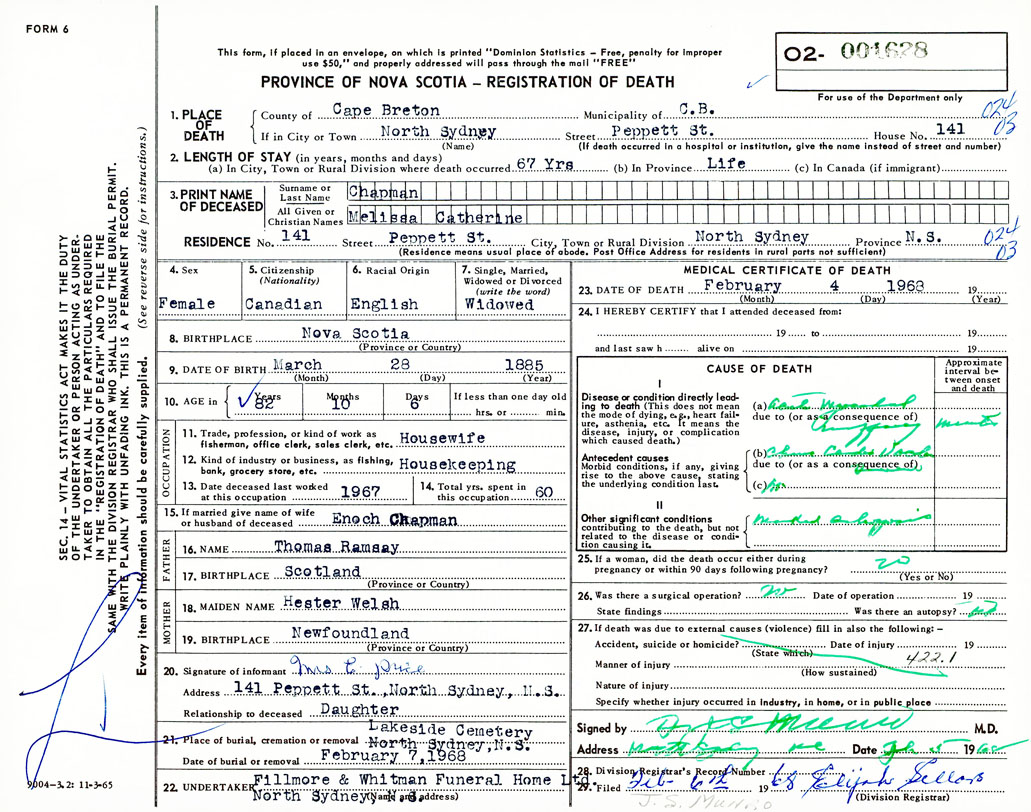 FORM 6
This form, if placed in an envelope, on which is printed "Dominion Statistics – Free, penalty for improper
use $50," and properly addressed will pass through the mail "FREE"
PROVINCE OF NOVA SCOTIA – REGISTRATION OF DEATH
02- 001628
For use of the Department only
1. PLACE OF DEATH
County of Cape Breton Municipality of C.B. 024
If in City or Town North Sydney Street Peppett St. House No. 141 03
(Name) (If death occurred in a hospital or institution, give the name instead of street and number)
2. LENGTH OF STAY (in years, months and days)
(a) In City, Town or Rural Division where death occurred 67 Yrs (b) In Province Life (c) In Canada (if immigrant)
3. PRINT NAME OF DECEASED
Surname or Last Name Chapman
All Given or Christian Names Melissa Catherine
RESIDENCE No. 141 Street Peppett St. City, Town or Rural Division North Sydney Province N.S. 024
(Residence means usual place of abode. Post Office Address for residents in rural parts not sufficient) 03
4. Sex
Female
5. Citizenship
(Nationality)
Canadian
6. Racial Origin
English
7. Single, Married,
Widowed or Divorced
(write the word)
Widowed
8. BIRTHPLACE Nova Scotia
(Province or Country)
9. DATE OF BIRTH March 28 1885
(Month) (Day) (Year)
10. AGE in Years Months Days If less than one day old
82 10 6 hrs. or min.
OCCUPATION
11. Trade, profession, or kind of work as
fisherman, office clerk, sales clerk, etc. Housewife
12. Kind of industry or business, as fishing,
bank, grocery store, etc. Housekeeping
13. Date deceased last worked
at this occupation 1967
14. Total yrs. spent in
this occupation 60
15. If married give name of wife
or husband of deceased Enoch Chapman
FATHER
16. NAME Thomas Ramsay
17. BIRTHPLACE Scotland
(Province or Country)
MOTHER
18. MAIDEN NAME Hester Welsh
19. BIRTHPLACE Newfoundland
(Province or Country)
20. Signature of informant Mrs C. Price
Address 141 Peppett St., North Sydney, N.S.
Relationship to deceased Daughter
Lakeside Cemetery
21. Place of burial, cremation or removal North Sydney, N.S.
Date of burial or removal February 7, 1968
22. UNDERTAKER Fillmore & Whitman Funeral Home Ltd.
North Sydney N.S.
(Name and address)
MEDICAL CERTIFICATE OF DEATH
23. DATE OF DEATH February 4 1968 19
(Month) (Day) (Year)
24. I HEREBY CERTIFY that I attended deceased from:
19 to 19
and last saw h alive on 19
CAUSE OF DEATH
Approximate
interval be-
tween onset
and death
I
Disease or condition directly lead-
ing to death (This does not
mean the mode of dying, e.g., heart fail-
ure, asthenia, etc. It means the
disease, injury, or complication
which caused death.)
(a) Acute Myocardial
due to (or as a consequence of)
Antecedent causes
Morbid conditions, if any, giving
rise to the above cause, stating
the underlying condition last.
(b)
due to (or as a consequence of)
(c)
II
Other significant conditions
contributing to the death, but not
related to the disease or condi-
tion causing it.
25. If a woman, did the death occur either during
pregnancy or within 90 days following pregnancy? no
(Yes or No)
26. Was there a surgical operation? no Date of operation 19
State findings Was there an autopsy? no
27. If death was due to external causes (violence) fill in also the following: –
Accident, suicide or homicide? Date of injury 19
(State which)
422.1
Manner of injury
(How sustained)
Nature of injury
Specify whether injury occurred in industry, in home, or in public place
Signed by M.D.
Address North Sydney Date Feb 5 1968
28. Division Registrar's Record Number
29. Filed Feb 6th 1968 Elijah Sellors
(Division Registrar)
SEC. 14 – VITAL STATISTICS ACT MAKES IT THE DUTY
OF THE UNDERTAKER OR PERSON ACTING AS UNDER-
TAKER TO OBTAIN ALL THE PARTICULARS REQUIRED
IN THE "REGISTRATION OF DEATH" AND TO FILE THE
SAME WITH THE DIVISION REGISTRAR WHO SHALL ISSUE THE BURIAL PERMIT.
WRITE PLAINLY WITH UNFADING INK. THIS IS A PERMANENT RECORD.
Every item of information should be carefully supplied. (See reverse side for instructions.)
9004-3.2: 11-3-65